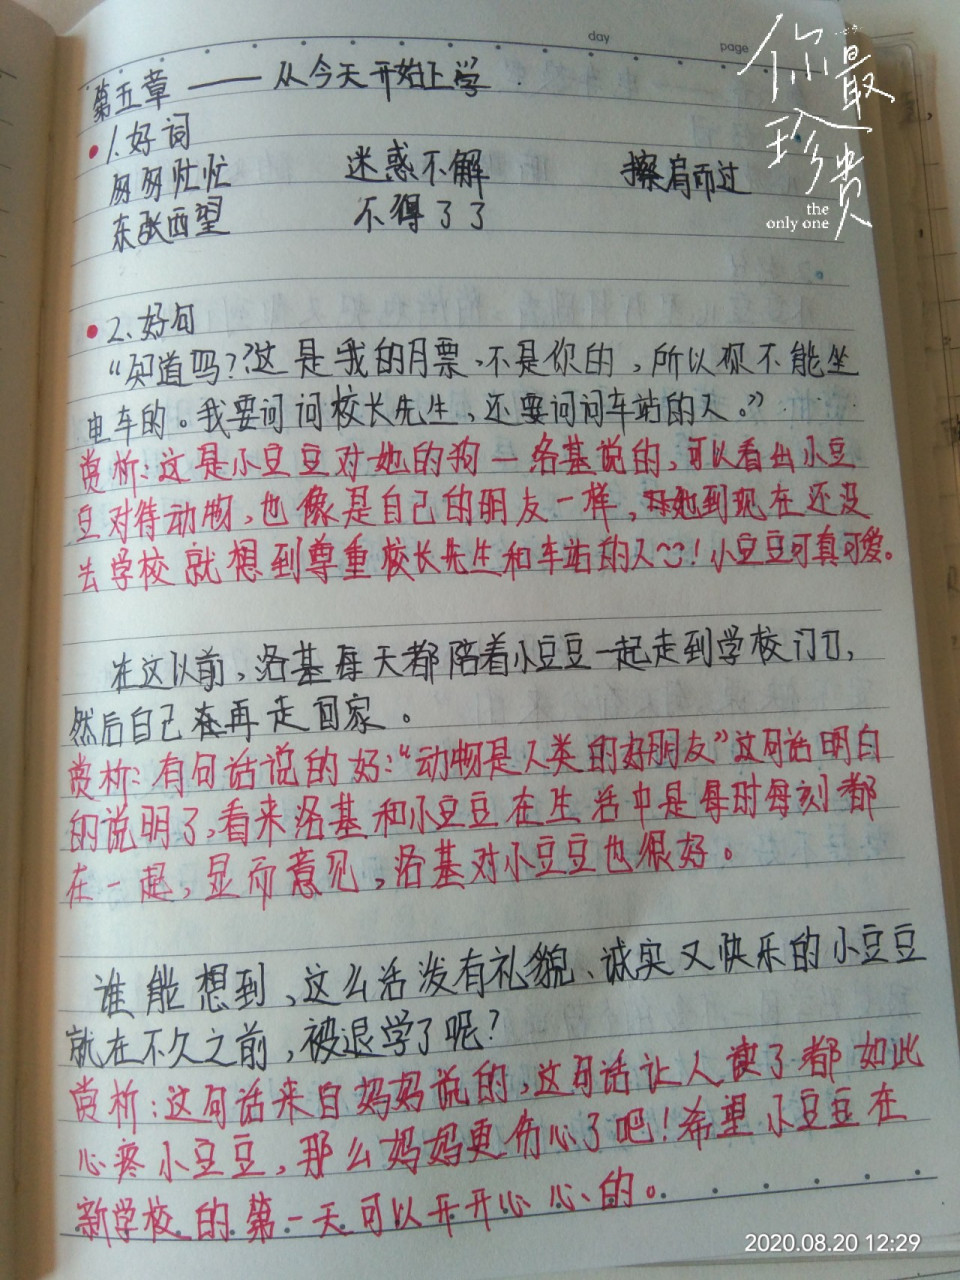 day
page
你最
珍贵
the
only one
第五章 —— 从今天开始上学
1.好词
匆匆忙忙 迷惑不解 擦肩而过
东张西望 不得了了
2.好句
“知道吗?这是我的月票、不是你的，所以你不能坐
电车的。我要问问校长先生，还要问问车站的人。”
赏析：这是小豆豆对她的狗—洛基说的，可以看出小豆
豆对待动物，也像是自己的朋友一样，她到现在还没
去学校就想到尊重校长先生和车站的人~~!小豆豆可真可爱。
在这以前，洛基每天都陪着小豆豆一起走到学校门口，
然后自己在再走回家。
赏析：有句话说的好：“动物是人类的好朋友”这句话明白
的说明了，看来洛基和小豆豆在生活中是每时每刻都
在一起，显而意见，洛基对小豆豆也很好。
谁能想到，这么活泼有礼貌、诚实又快乐的小豆豆
就在不久之前，被退学了呢?
赏析：这句话来自妈妈说的，这句话让人读了都如此
心疼小豆豆，那么妈妈更伤心了吧!希望小豆豆在
新学校的第一天可以开开心心的。
2020.08.20 12:29